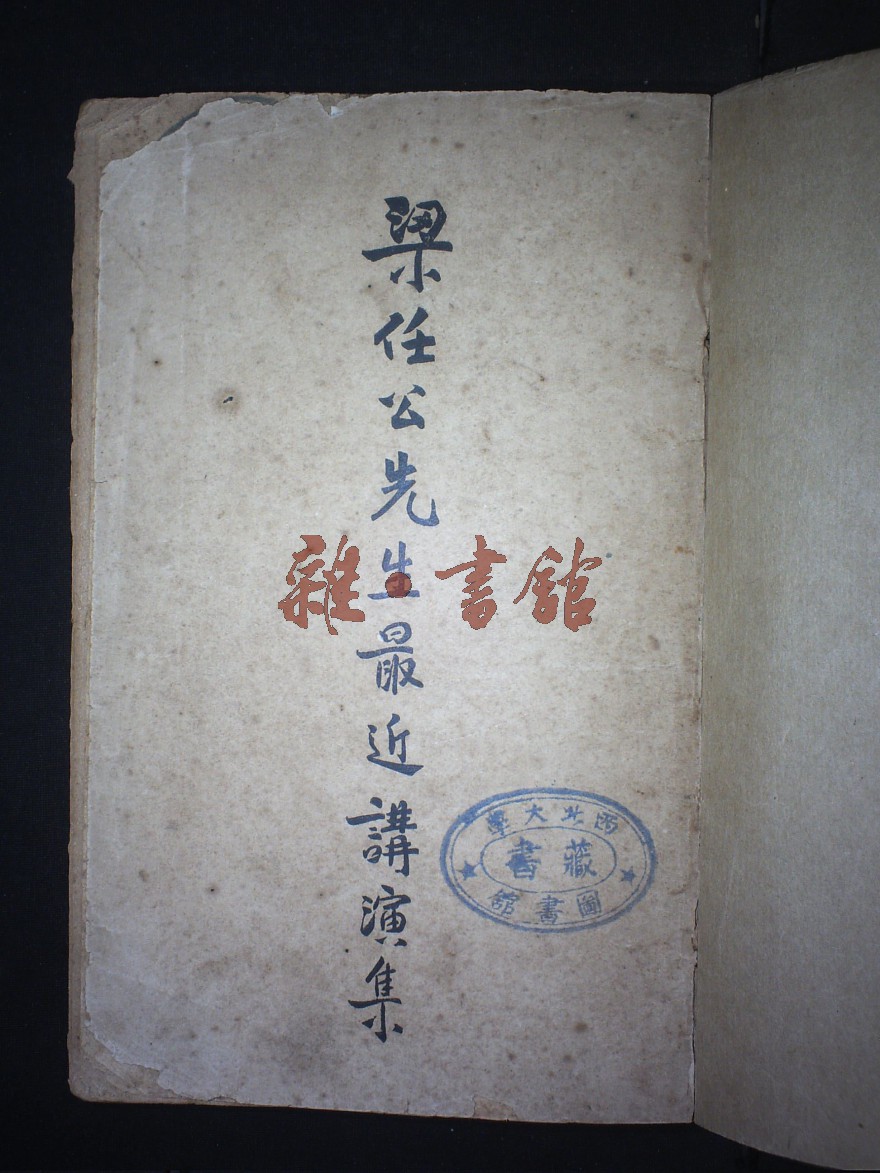 梁任公先生最近講演集
雜·書館
西北大學
藏書
圖書館